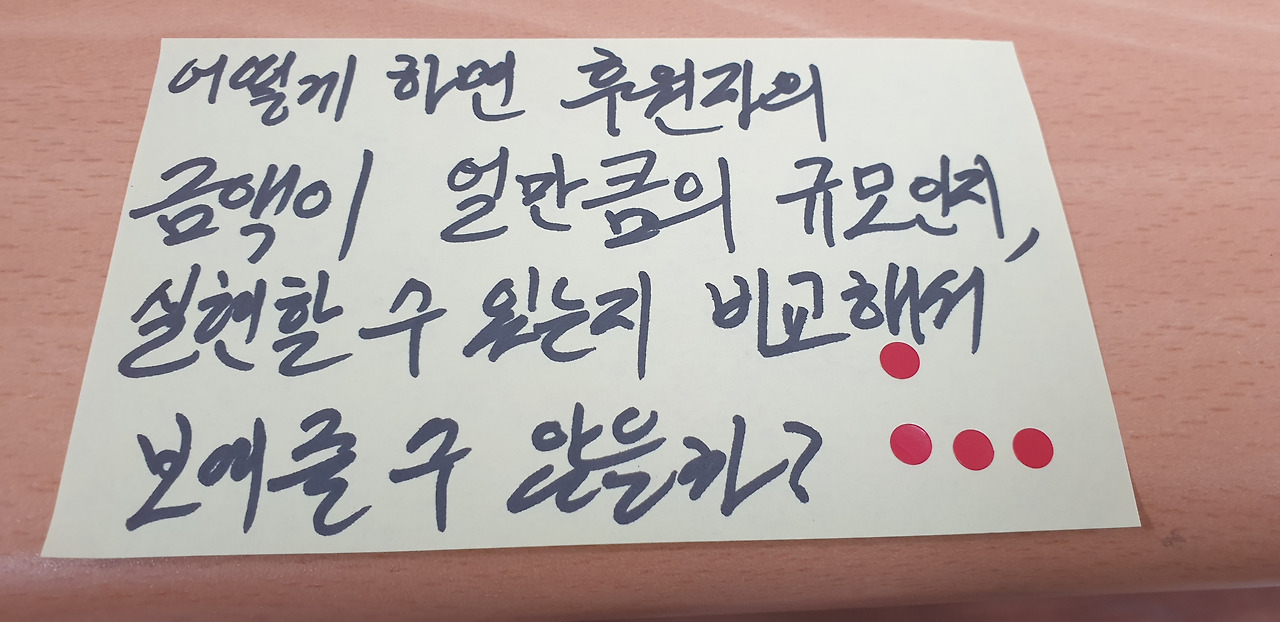 어떻게 하면 후원자의
금액이 얼만큼의 규모인지,
실현할 수 있는지 비교해서
보여줄 수 있을까?